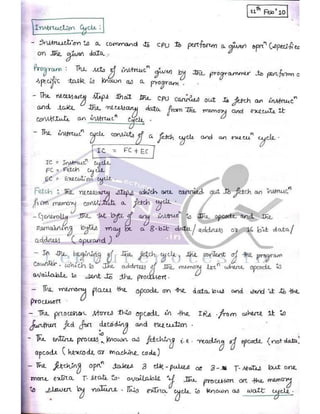 11th Feb' 10
Instruction Cycle :
- Instruction is a command to CPU to perform a given oprn (specified
on the given data.
Program : The sets of instrucn given by the programmer to perform a
specific task is known as a program.
- The necessary steps that the CPU carries out to fetch an instrucn
and take the necessary data from the memory and execute it
constitute an instrucn cycle.
- The instrucn cycle consists of a fetch cycle and an execun cycle.
IC = FC + EC
IC = Instrucn cycle
FC = Fetch cycle
EC = Execution cycle
Fetch : The necessary steps which are carried out to fetch an instrucn
from memory constitute a fetch cycle.
- Generally the 1st byte of any instrucn is the opcode and the
remaining bytes may be a 8-bit data / address or 16 bit data /
address (operand)
- In the begining of the fetch cycle, the content of the program
counter, which is the address of the memory locn where opcode is
available is sent to the processor.
- The memory places the opcode on the data bus and send it to the
processor
- The processor stores this opcode in the IR, from where it is
further fed for decoding and execution.
- The entire process known as fetching i.e. reading of opcode (not data)
opcode (hexcode or machine code)
- The fetching oprn takes 3 clk-pulses or 3- T-states but one
more extra T-state is available if the processor or the memory
is slower by nature. This extra cycle is known as wait cycle.